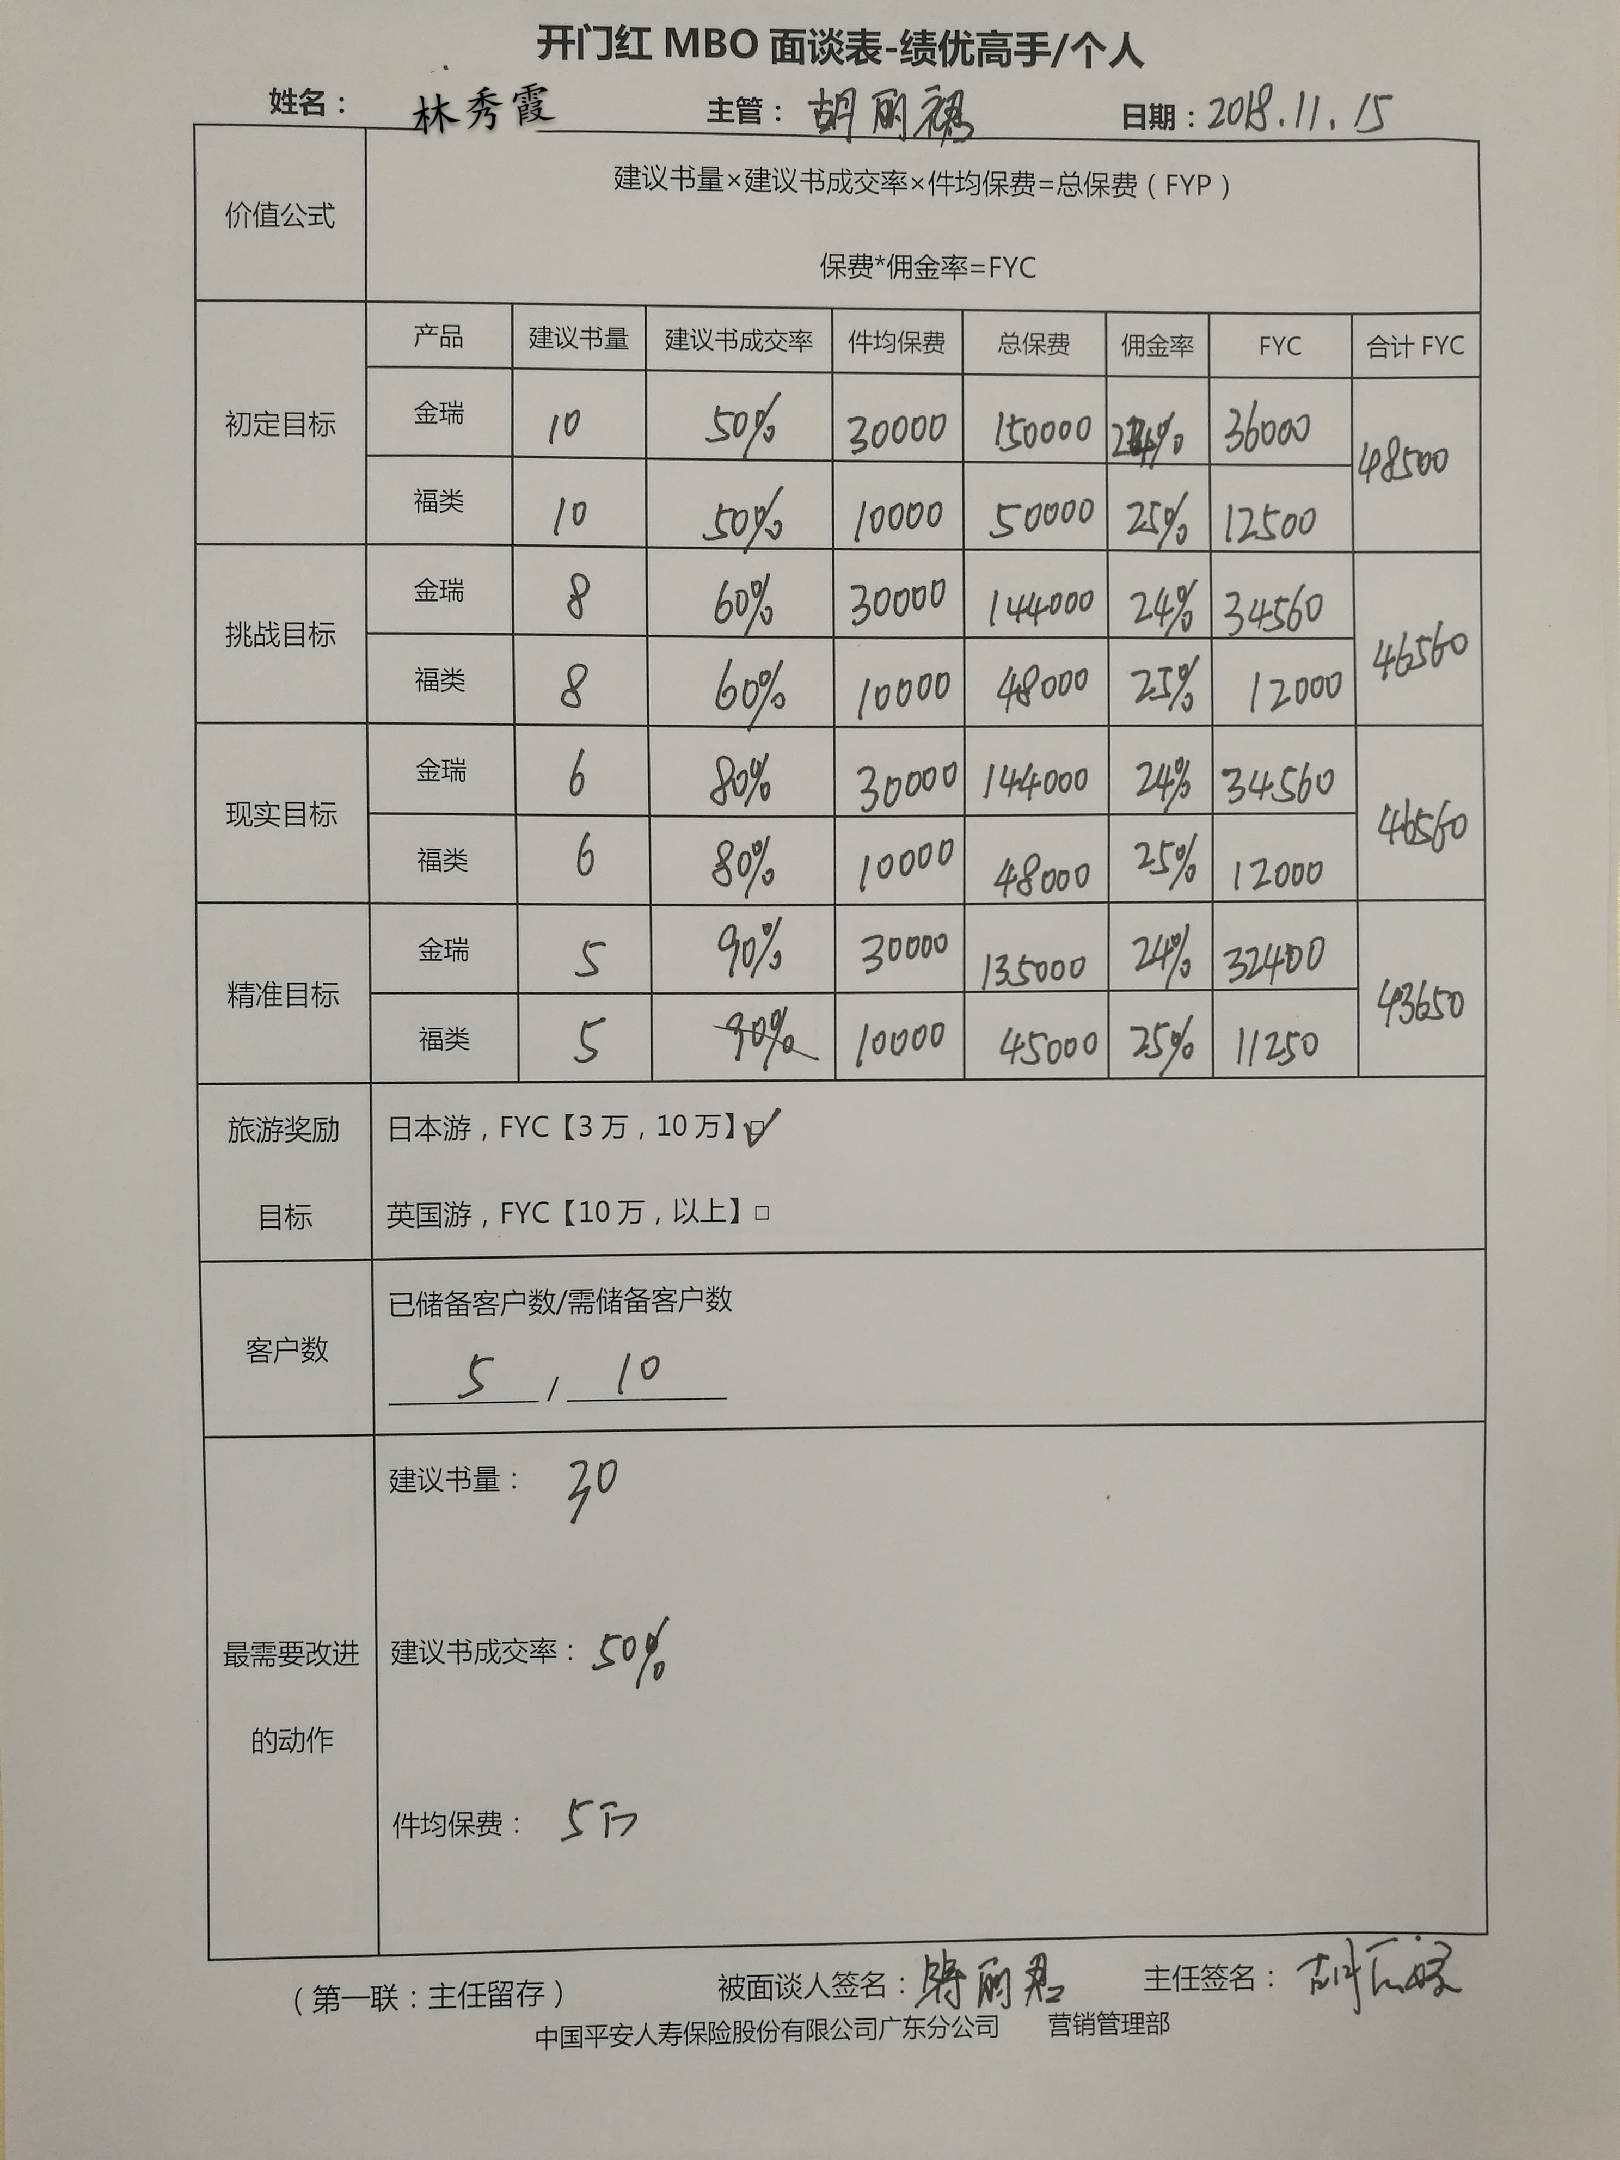 开门红 MBO 面谈表-绩优高手/个人
姓名： 林秀霞 主管：胡丽 日期：2018.11.15
价值公式
建议书量×建议书成交率×件均保费=总保费（FYP）
保费*佣金率=FYC
产品 建议书量 建议书成交率 件均保费 总保费 佣金率 FYC 合计 FYC
初定目标
金瑞 10 50% 30000 150000 24% 36000
48500
福类 10 50% 10000 50000 25% 12500
挑战目标
金瑞 8 60% 30000 144000 24% 34560
46560
福类 8 60% 10000 48000 25% 12000
现实目标
金瑞 6 80% 30000 144000 24% 34560
46560
福类 6 80% 10000 48000 25% 12000
精准目标
金瑞 5 90% 30000 135000 24% 32400
43650
福类 5 90% 10000 45000 25% 11250
旅游奖励
目标
日本游，FYC【3万，10万】☑
英国游，FYC【10万，以上】□
客户数
已储备客户数/需储备客户数
5 / 10
最需要改进
的动作
建议书量： 30
建议书成交率：50%
件均保费： 5万
（第一联：主任留存） 被面谈人签名：丽君 主任签名：胡
中国平安人寿保险股份有限公司广东分公司 营销管理部